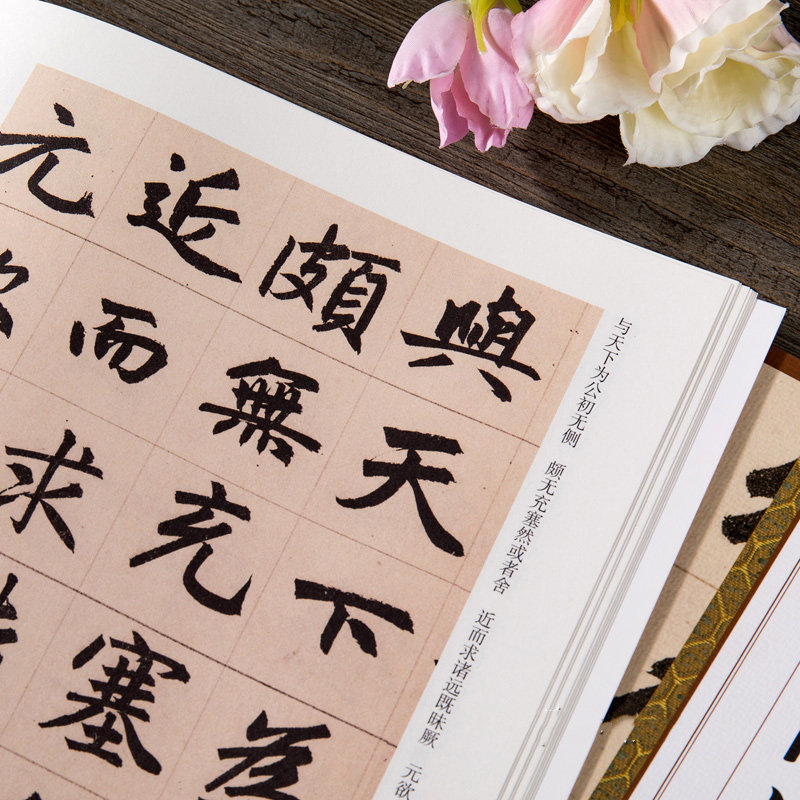 與天下
頗無充塞
近而求
元
与天下为公初无侧 颇无充塞然或者舍 近而求诸远既昧厥 元欲